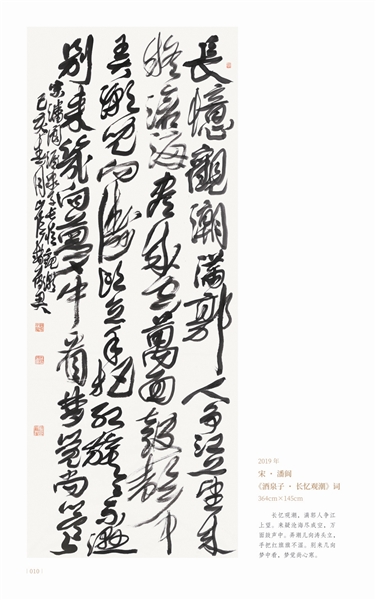 長憶觀潮滿郭人爭江上望來
疑滄海盡成空萬面鼓聲中
弄潮兒向濤頭立手把紅旗旗不濕
別來幾向夢中看夢覺尚心寒
宋潘閬酒泉子長憶觀潮
己亥
2019 年
宋 · 潘阆
《酒泉子 · 长忆观潮》词
364cm×145cm
长忆观潮，满郭人争江
上望。来疑沧海尽成空，万
面鼓声中。弄潮儿向涛头立，
手把红旗旗不湿。别来几向
梦中看，梦觉尚心寒。
| 010 |